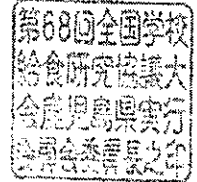 第68回全国学校
給食研究協議大
会鹿児島県実行
委員会委員長之印